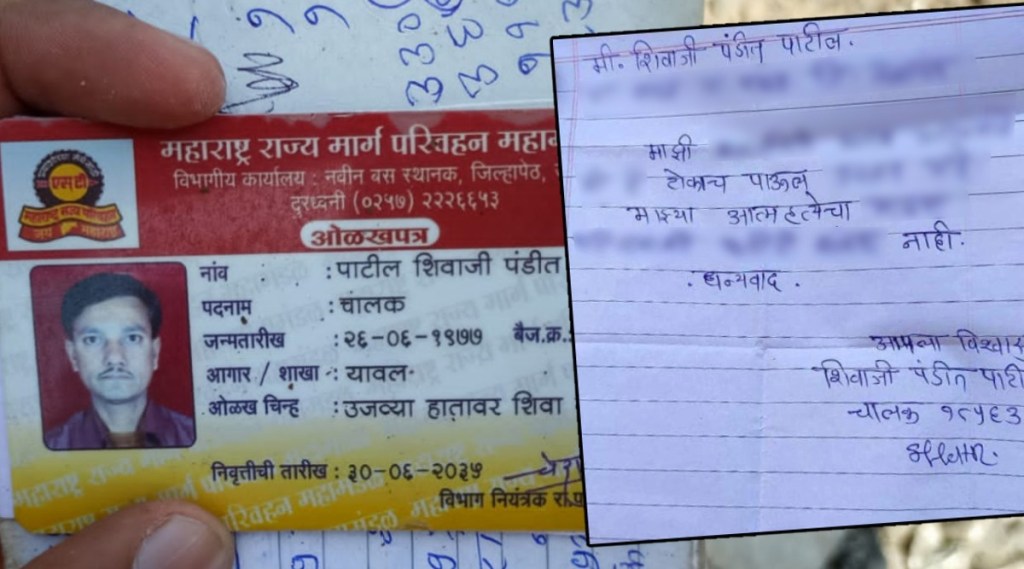 महाराष्ट्र राज्य मार्ग परिवहन
विभागीय कार्यालय : नवीन बस स्थानक, जिल्हापेठ,
दुरध्वनी (०२५७) २२२६६५३
ओळखपत्र
एस टी
जय महाराष्ट्र
नांव : पाटील शिवाजी पंडीत
पदनाम : चालक
जन्मतारीख : २६-०६-१९७७ बैज.क्र.:
आगार / शाखा : यावल
ओळख चिन्ह : उजव्या हातावर शिवा
निवृत्तीची तारीख : ३०-०६-२०३५
विभाग नियंत्रक रा.प
मी. शिवाजी पंडीत पाटील.
माझी
टोकाच पाऊल
माझ्या आत्महत्येचा
नाही.
. धन्यवाद .
आपला
शिवाजी पंडीत पाटी
चालक १८५६३